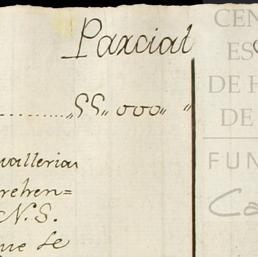 Parcial
55,,000,,
valleria
rehen=
N.S.
que se
CEN
ES
DE H
DE
FUN
Ca